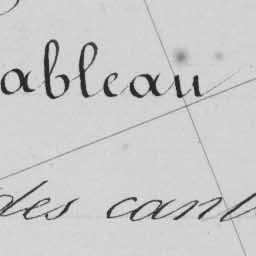 ableau
des cant